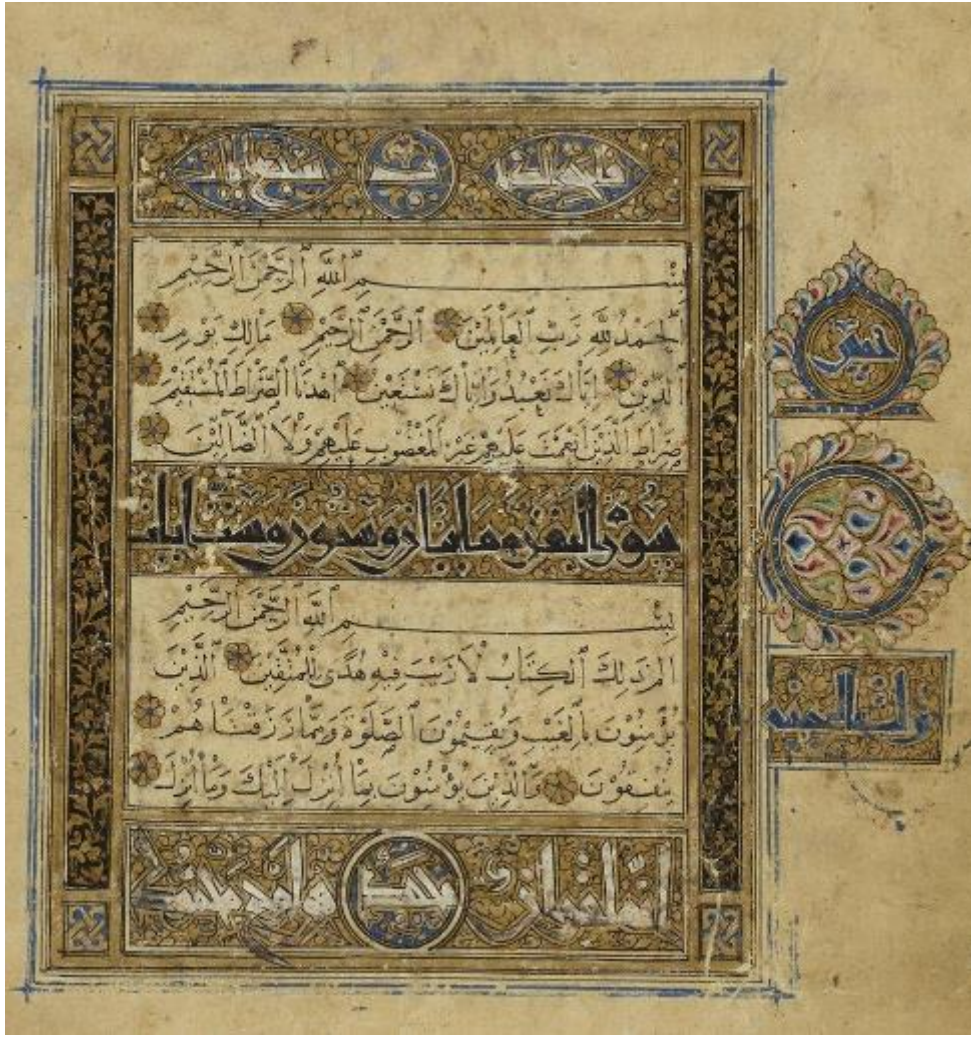 فاتحة الكتاب سبع ايات
بِسْمِ ٱللَّهِ ٱلرَّحْمَنِ ٱلرَّحِيمِ
اَلْحَمْدُ لِلَّهِ رَبِّ ٱلْعَالَمِينَ ٱلرَّحْمَنِ ٱلرَّحِيمِ مَالِكِ يَوْمِ
ٱلدِّينِ اِيَّاكَ نَعْبُدُ وَاِيَّاكَ نَسْتَعِينُ اِهْدِنَا ٱلصِّرَاطَ ٱلْمُسْتَقِيمَ
صِرَاطَ ٱلَّذِينَ اَنْعَمْتَ عَلَيْهِمْ غَيْرِ ٱلْمَغْضُوبِ عَلَيْهِمْ وَلَا ٱلضَّالِّينَ
سورة البقرة وست ايات
بِسْمِ ٱللَّهِ ٱلرَّحْمَنِ ٱلرَّحِيمِ
الم ذَلِكَ ٱلْكِتَابُ لَا رَيْبَ فِيهِ هُدًى لِلْمُتَّقِينَ ٱلَّذِينَ
يُؤْمِنُونَ بِٱلْغَيْبِ وَيُقِيمُونَ ٱلصَّلٰوةَ وَمِمَّا رَزَقْنَاهُمْ
يُنْفِقُونَ وَٱلَّذِينَ يُؤْمِنُونَ بِمَا أُنْزِلَ اِلَيْكَ وَمَا أُنْزِلَ